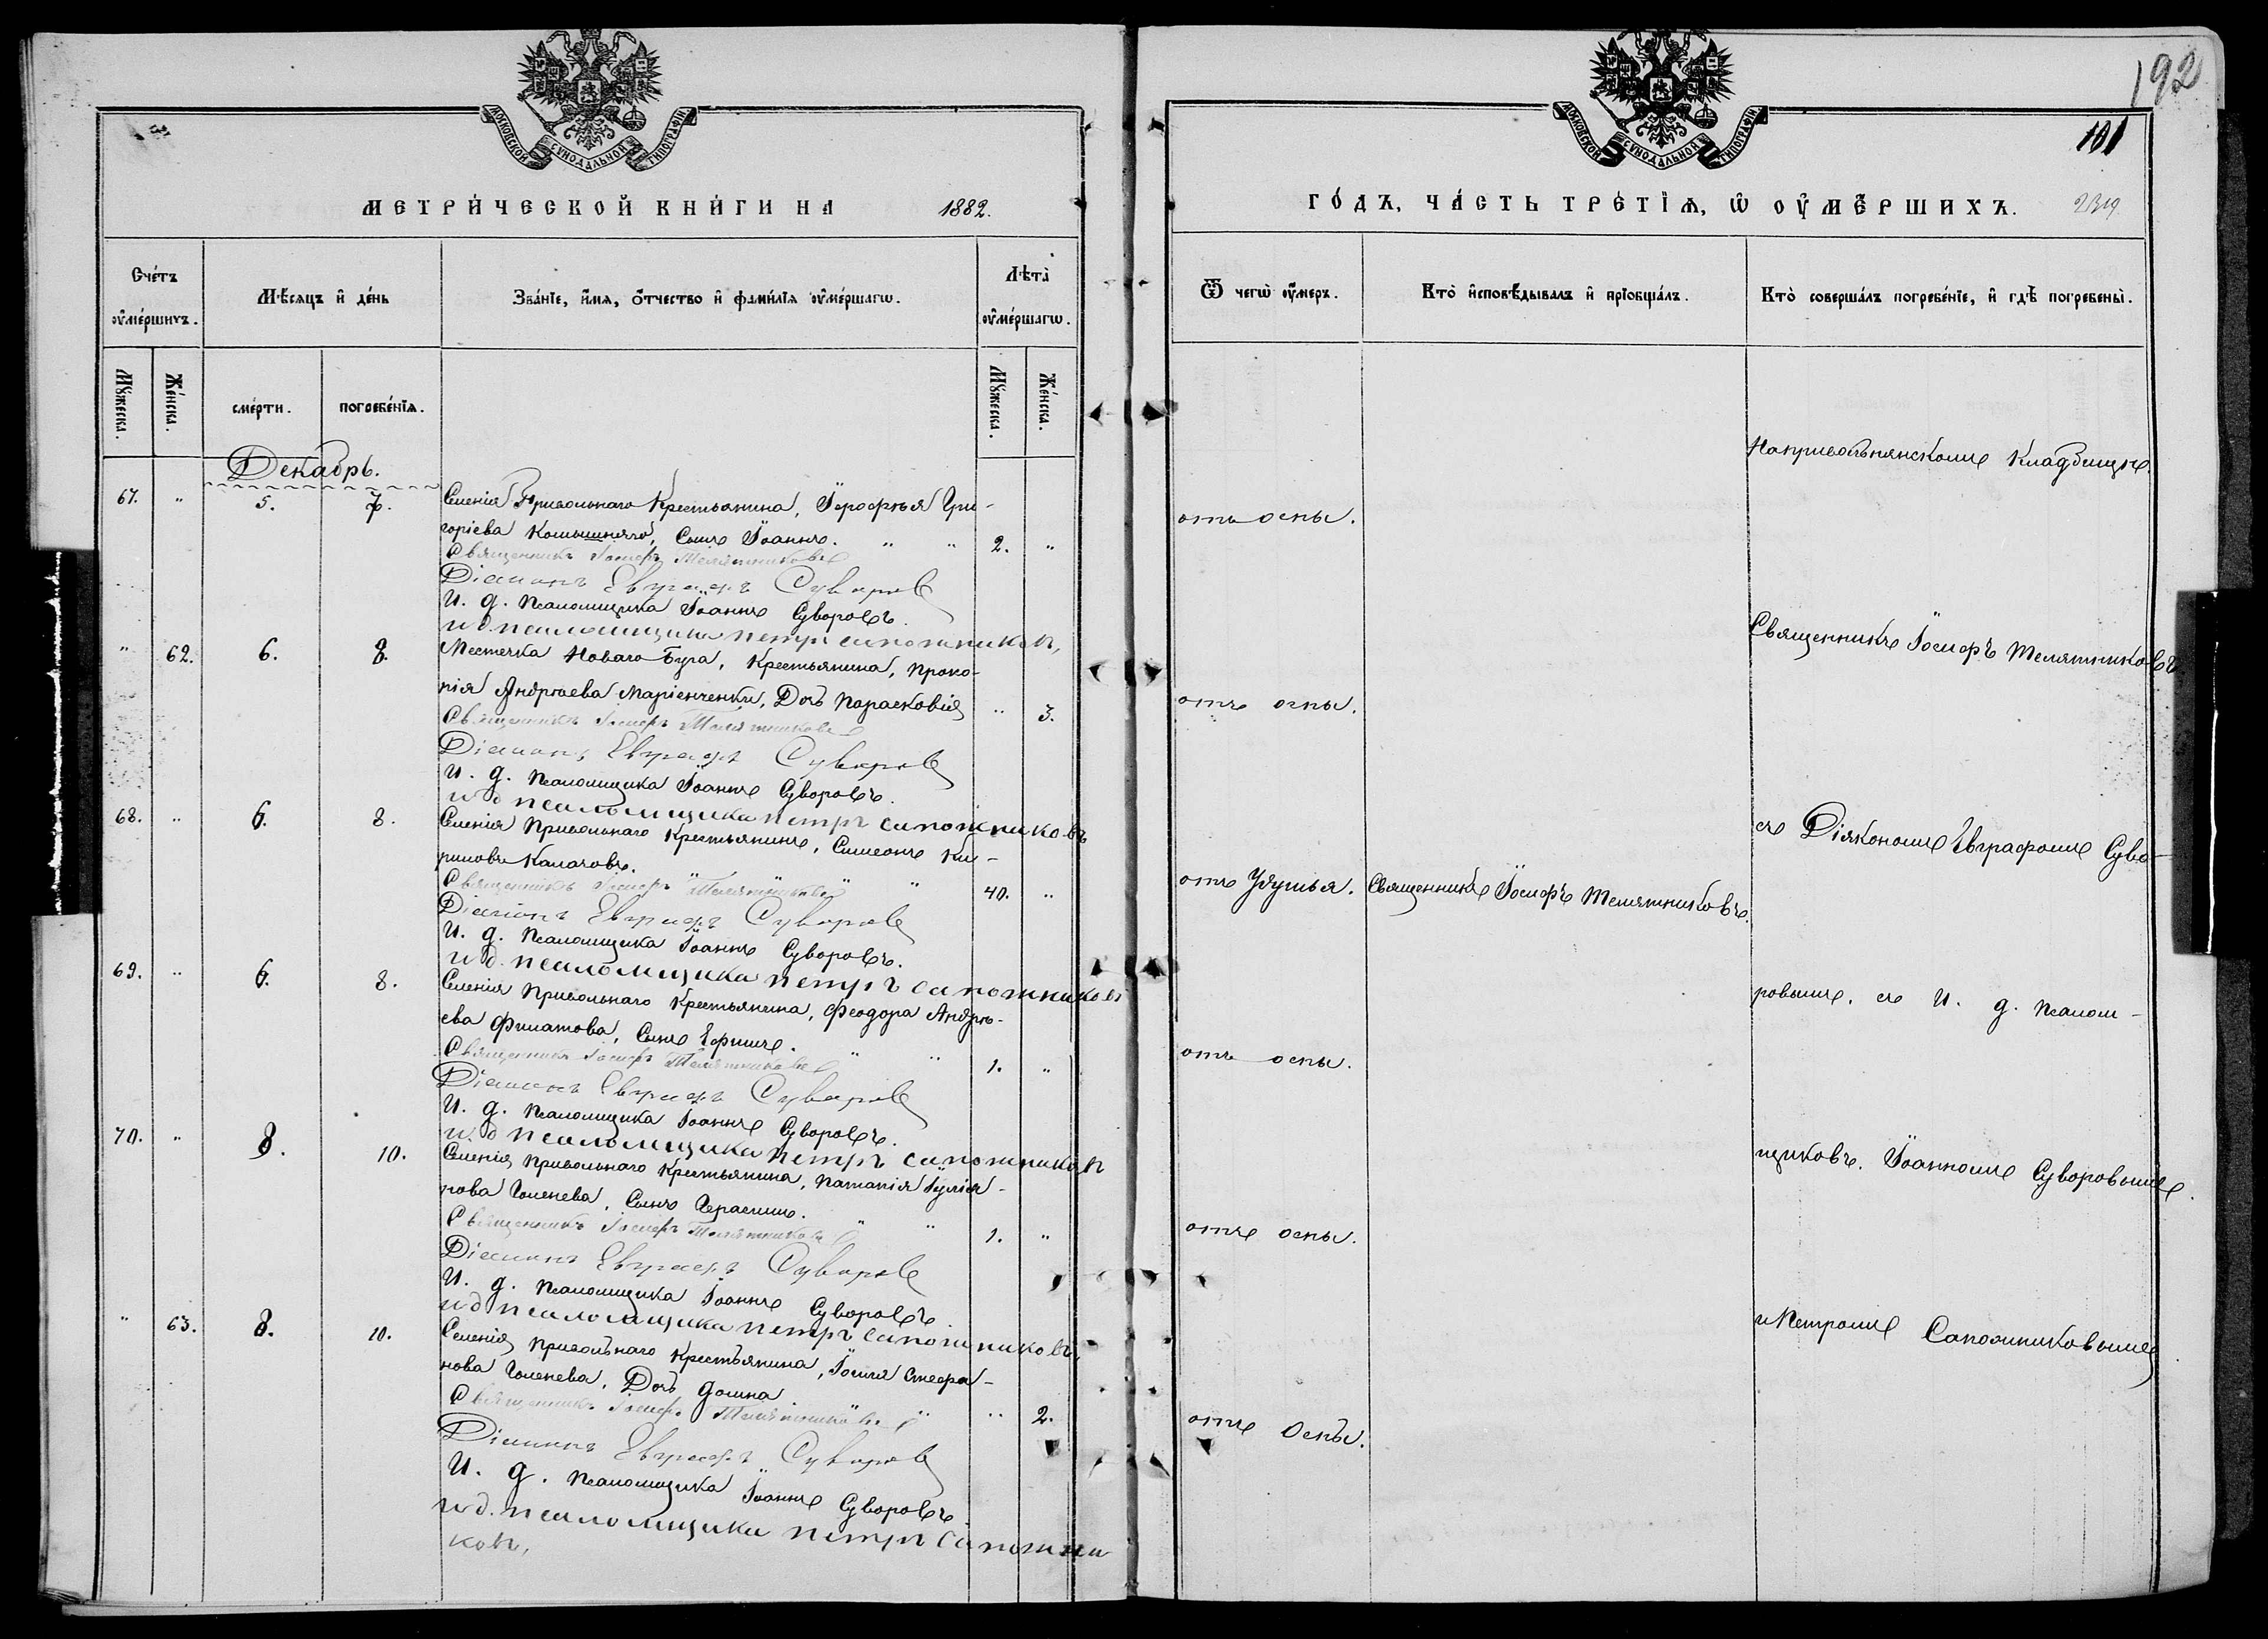 192
МОСКОВСКОЙ СѴНОДАЛЬНОЙ ТИПОГРАФІИ
МЕТРИ́ЧЕСКОЙ КНИ́ГИ НА 1882.
Сче́тъ ᲂу҆ме́ршихъ.
Мѣ́сяцъ и҆ де́нь
Зва́нїе, и҆́мя, ѻ҆́тчество и҆ фами́лїя ᲂу҆ме́ршагѡ.
Лѣ́та ᲂу҆ме́ршагѡ.
Мꙋ́жеска.
Же́нска.
сме́рти.
погребе́нїѧ.
Мꙋ́жеска.
Же́нска.
Декабрь.
67. " 5. 7. Селенія Привольнаго Крестьянина, Іерофѣя Гри-
горіева Сынъ Іоаннъ. " " 2. "
Священникъ Іосифъ Телятниковъ
Діаконъ Евграфъ Суворовъ
И. д. Псаломщика Іоаннъ Суворовъ.
и д. псаломщика петръ сапожниковъ,
" 62. 6. 8. Местечка Новаго Буга, Крестьянина, Проко-
пія Андреева Маріенченки, Дочь Парасковія " 3.
Священникъ Іосифъ Телятниковъ
Діаконъ Евграфъ Суворовъ
И. д. Псаломщика Іоаннъ Суворовъ.
и д псаломщика петръ сапожниковъ
68. " 6. 8. Селенія Привольнаго Крестьянинъ, Симеонъ Ки-
риловъ Калачовъ. " " 40. "
Священникъ Іосифъ Телятниковъ
Діаконъ Евграфъ Суворовъ
И. д. Псаломщика Іоаннъ Суворовъ.
и д. псаломщика петръ сапожниковъ
69. " 6. 8. Селенія Привольнаго Крестьянина, Феодора Андрѣ-
ева Филатова, Сынъ Ефимъ. " " 1. "
Священникъ Іосифъ Телятниковъ
Діаконъ Евграфъ Суворовъ
И. д. Псаломщика Іоаннъ Суворовъ.
и. д псаломщика петръ сапожниковъ
70. " 8. 10. Селенія Привольнаго Крестьянина,
Голенева, Сынъ Герасимъ. " " 1. "
Священникъ Іосифъ Телятниковъ
Діаконъ Евграфъ Суворовъ
И. д. Псаломщика Іоаннъ Суворовъ.
и д псаломщика петръ сапожниковъ,
" 63. 8. 10. Селенія Привольнаго Крестьянина, Стефа-
нова Голенева, Дочь Домна " " 2.
Священникъ Іосифъ Телятниковъ
Діаконъ Евграфъ Суворовъ
И. д. Псаломщика Іоаннъ Суворовъ.
и д. псаломщика петръ сапожни
ковъ,
МОСКОВСКОЙ СѴНОДАЛЬНОЙ ТИПОГРАФІИ
101
ГО́ДЪ, ЧА́СТЬ ТРЕ́ТЇѦ, Ѡ҆ ОУ҆МЕ́РШИХЪ.
Ѿ чегѡ̀ ᲂу҆́меръ.
Кто̀ и҆сповѣ́дывалъ и҆ прїобща́лъ.
Кто̀ соверша́лъ погребе́нїе, и҆ гдѣ̀ погребены̀.
На привольнянскомъ Кладбищѣ.
отъ оспы.
Священникъ Іосифъ Телятниковъ
отъ оспы.
съ Діякономъ Евграфомъ Суво-
отъ Удушья. Священникъ Іосифъ Телятниковъ.
ровымъ. съ И. д. псалом-
отъ оспы.
щиковъ. Іоанномъ Суворовымъ.
отъ оспы.
и Петромъ Сапожниковымъ
отъ Оспы.